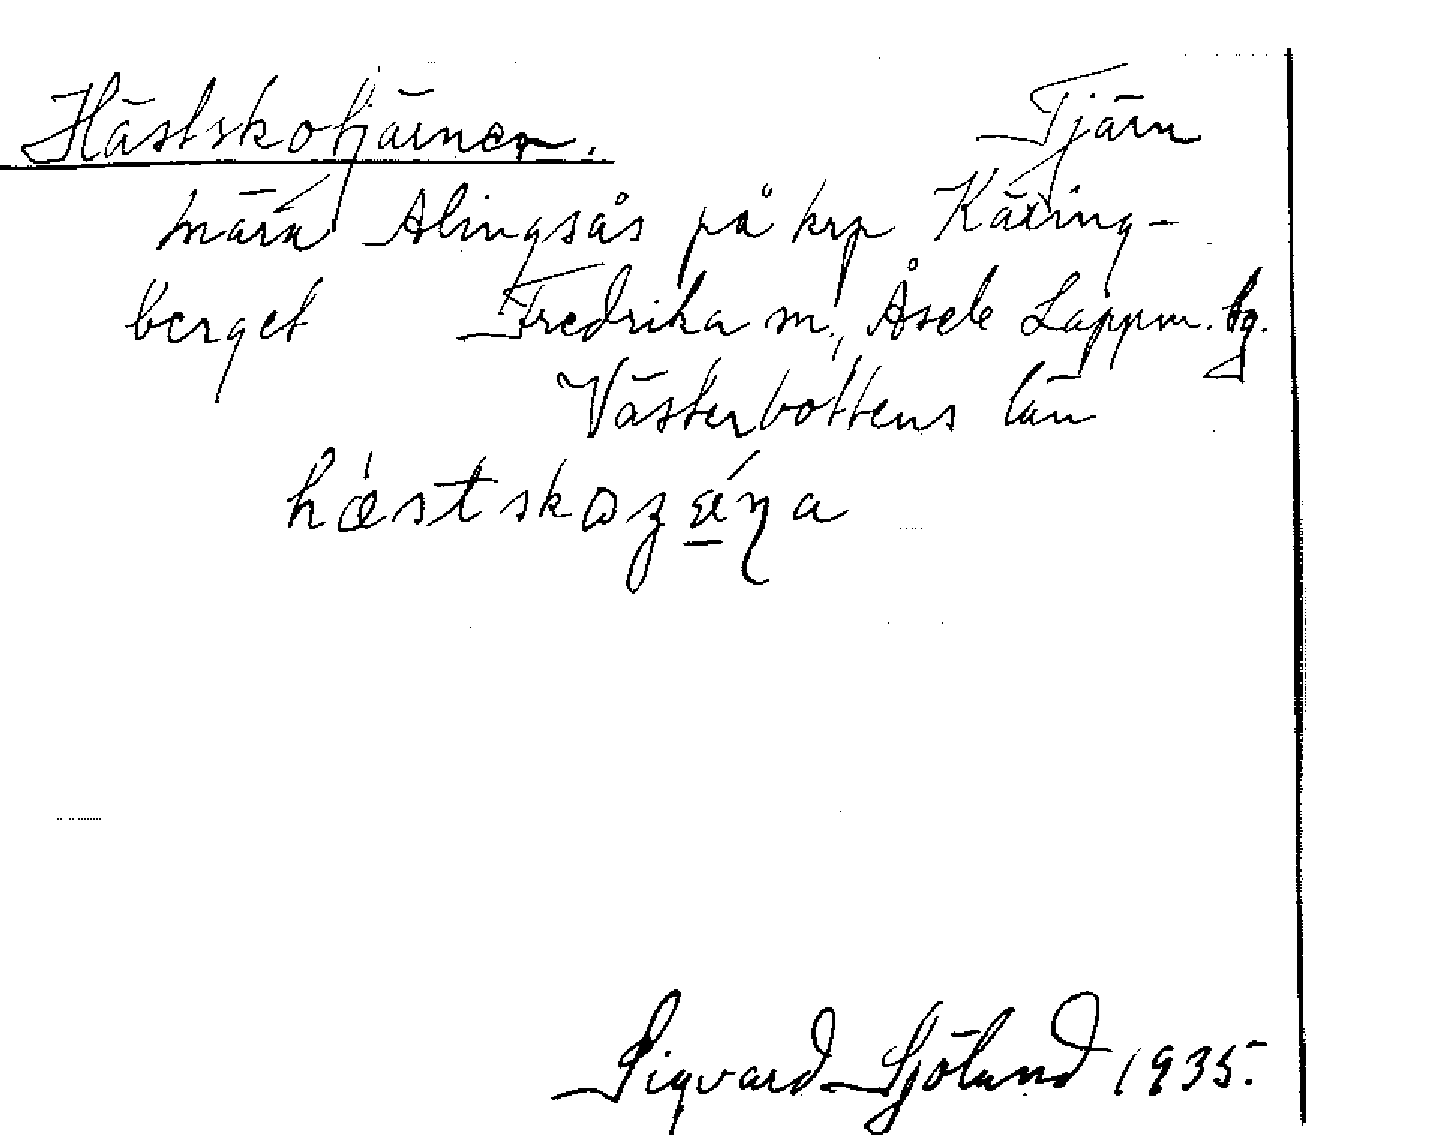 Hästskotjärnen. Tjärn
nära Alingsås på krp Käring-
berget Fredrika sn, Åsele Lappm. tg.
Västerbottens län
Sigvard Sjölund 1935.